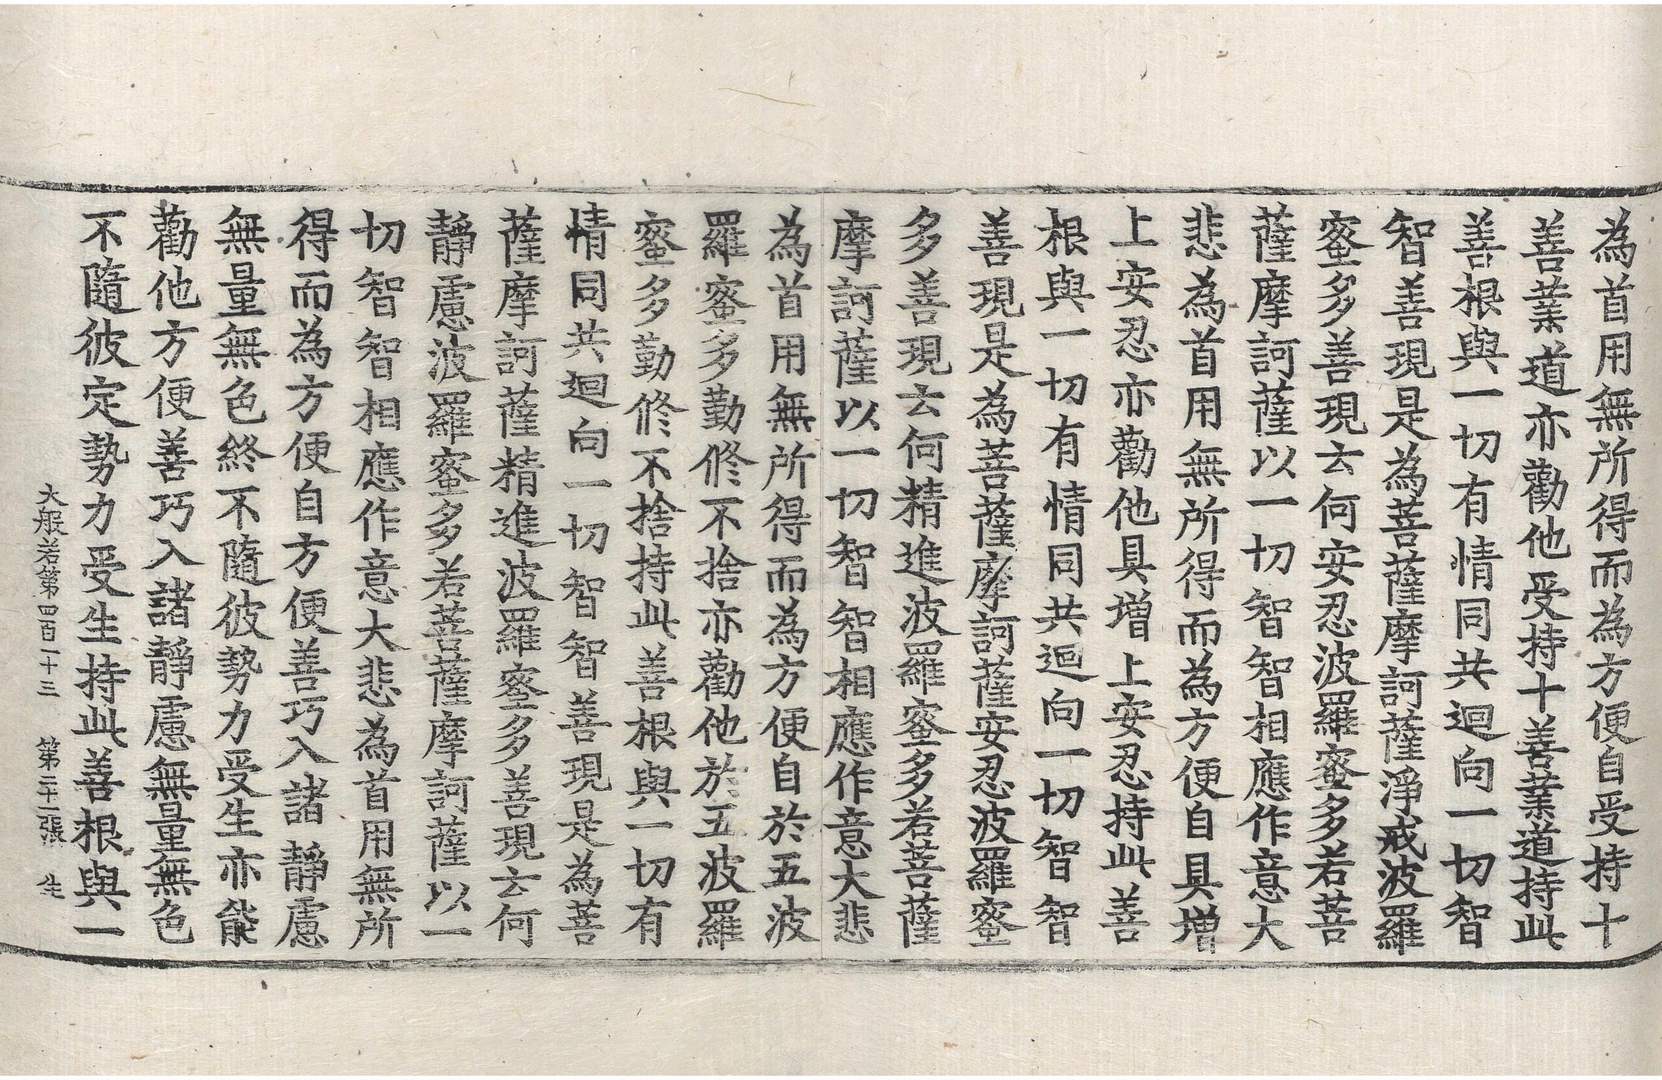 為首用無所得而為方便自受持十
善業道亦勸他受持十善業道持此
善根與一切有情同共迴向一切智
智善現是為菩薩摩訶薩淨戒波羅
蜜多善現云何安忍波羅蜜多若菩
薩摩訶薩以一切智智相應作意大
悲為首用無所得而為方便自具增
上安忍亦勸他具增上安忍持此善
根與一切有情同共迴向一切智智
善現是為菩薩摩訶薩安忍波羅蜜
多善現云何精進波羅蜜多若菩薩
摩訶薩以一切智智相應作意大悲
為首用無所得而為方便自於五波
羅蜜多勤修不捨亦勸他於五波羅
蜜多勤修不捨持此善根與一切有
情同共迴向一切智智善現是為菩
薩摩訶薩精進波羅蜜多善現云何
靜慮波羅蜜多若菩薩摩訶薩以一
切智智相應作意大悲為首用無所
得而為方便自方便善巧入諸靜慮
無量無色終不隨彼勢力受生亦能
勸他方便善巧入諸靜慮無量無色
不隨彼定勢力受生持此善根與一
大般若第四百一十三 第二十二張